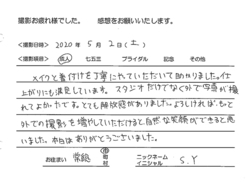 撮影お疲れ様でした。　感想をお願いいたします。
<撮影日時>　2020年 5月 2日(土)
<撮影項目>　成人　七五三　ブライダル　記念　その他
メイクと着付けを丁寧にしていただいて助かりました。仕
上がりにも満足しています。スタジオだけでなく外で写真が撮
れてよかったです。とても解放感がありました。よろしければ、もっと
外での撮影を増やしていただけると自然な笑顔ができると思
いました。本日はありがとうございました。
お住まい　常総　市
ニックネーム
イニシャル　S.Y